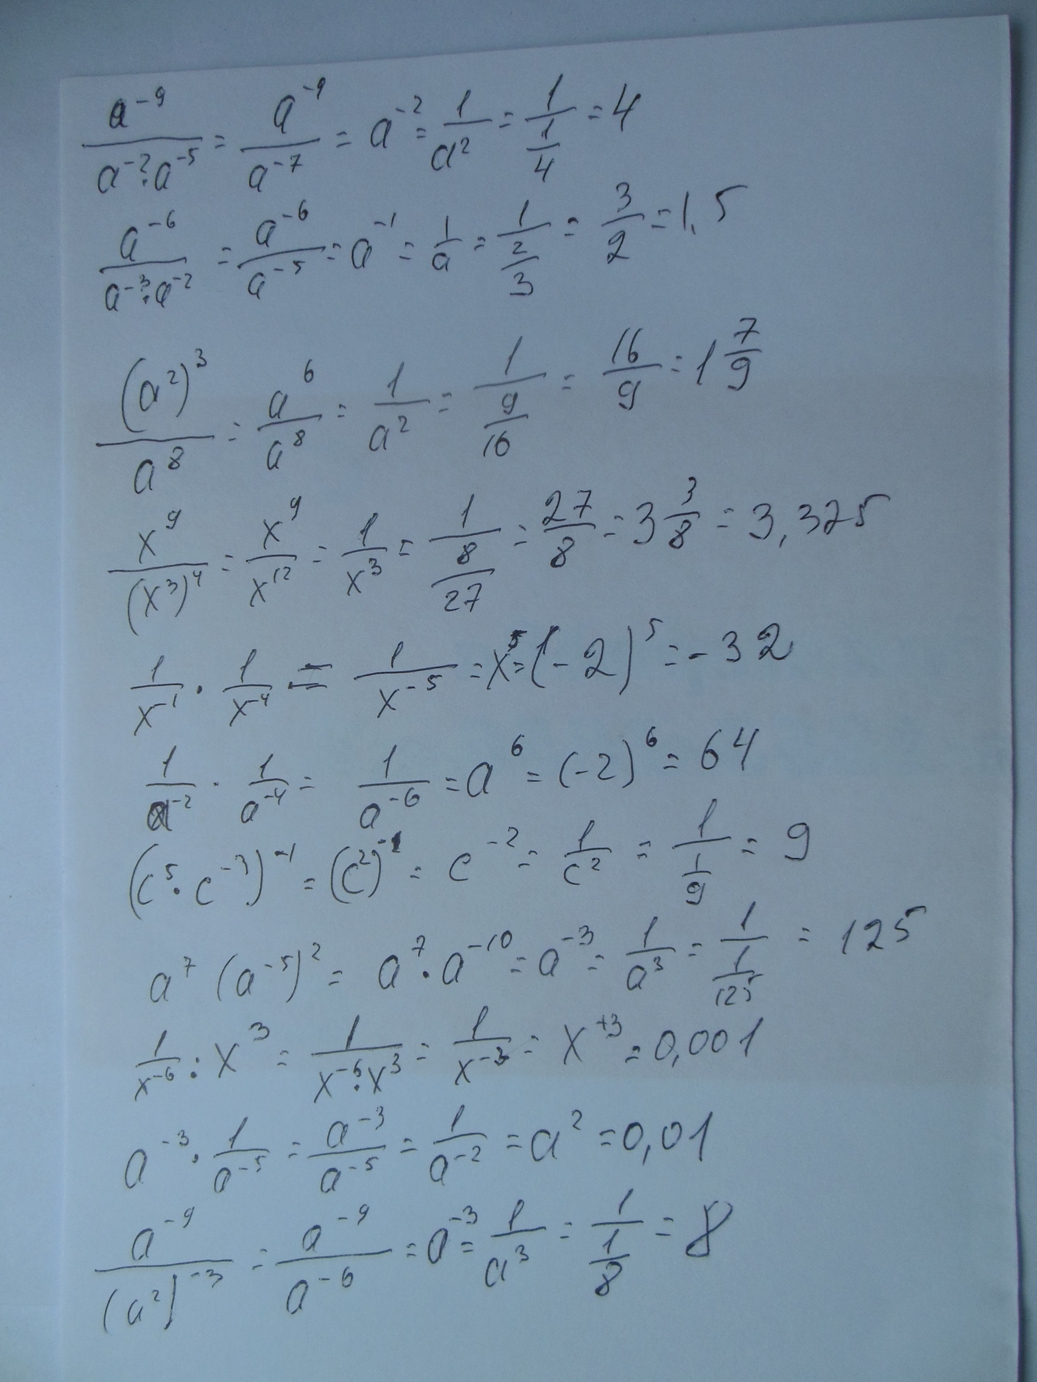 a^-9/(a^-2·a^-5) = a^-9/a^-7 = a^-2 = 1/a^2 = 1/(1/4) = 4
a^-6/(a^-3·a^-2) = a^-6/a^-5 = a^-1 = 1/a = 1/(2/3) = 3/2 = 1,5
(a^2)^3/a^8 = a^6/a^8 = 1/a^2 = 1/(9/16) = 16/9 = 1 7/9
x^9/(x^3)^4 = x^9/x^12 = 1/x^3 = 1/(8/27) = 27/8 = 3 3/8 = 3,325
1/x^-1 · 1/x^-4 = 1/x^-5 = x^5 = (-2)^5 = -32
1/a^-2 · 1/a^-4 = 1/a^-6 = a^6 = (-2)^6 = 64
(c^5·c^-3)^-1 = (c^2)^-1 = c^-2 = 1/c^2 = 1/(1/9) = 9
a^7 (a^-5)^2 = a^7·a^-10 = a^-3 = 1/a^3 = 1/(1/125) = 125
1/x^-6 : x^3 = 1/(x^-6·x^3) = 1/x^-3 = x^+3 = 0,001
a^-3 · 1/a^-5 = a^-3/a^-5 = 1/a^-2 = a^2 = 0,01
a^-9/(a^2)^-3 = a^-9/a^-6 = a^-3 = 1/a^3 = 1/(1/8) = 8